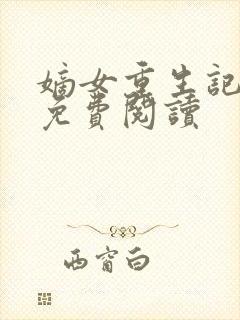 嫡女重生記
免費閱讀
西窗白